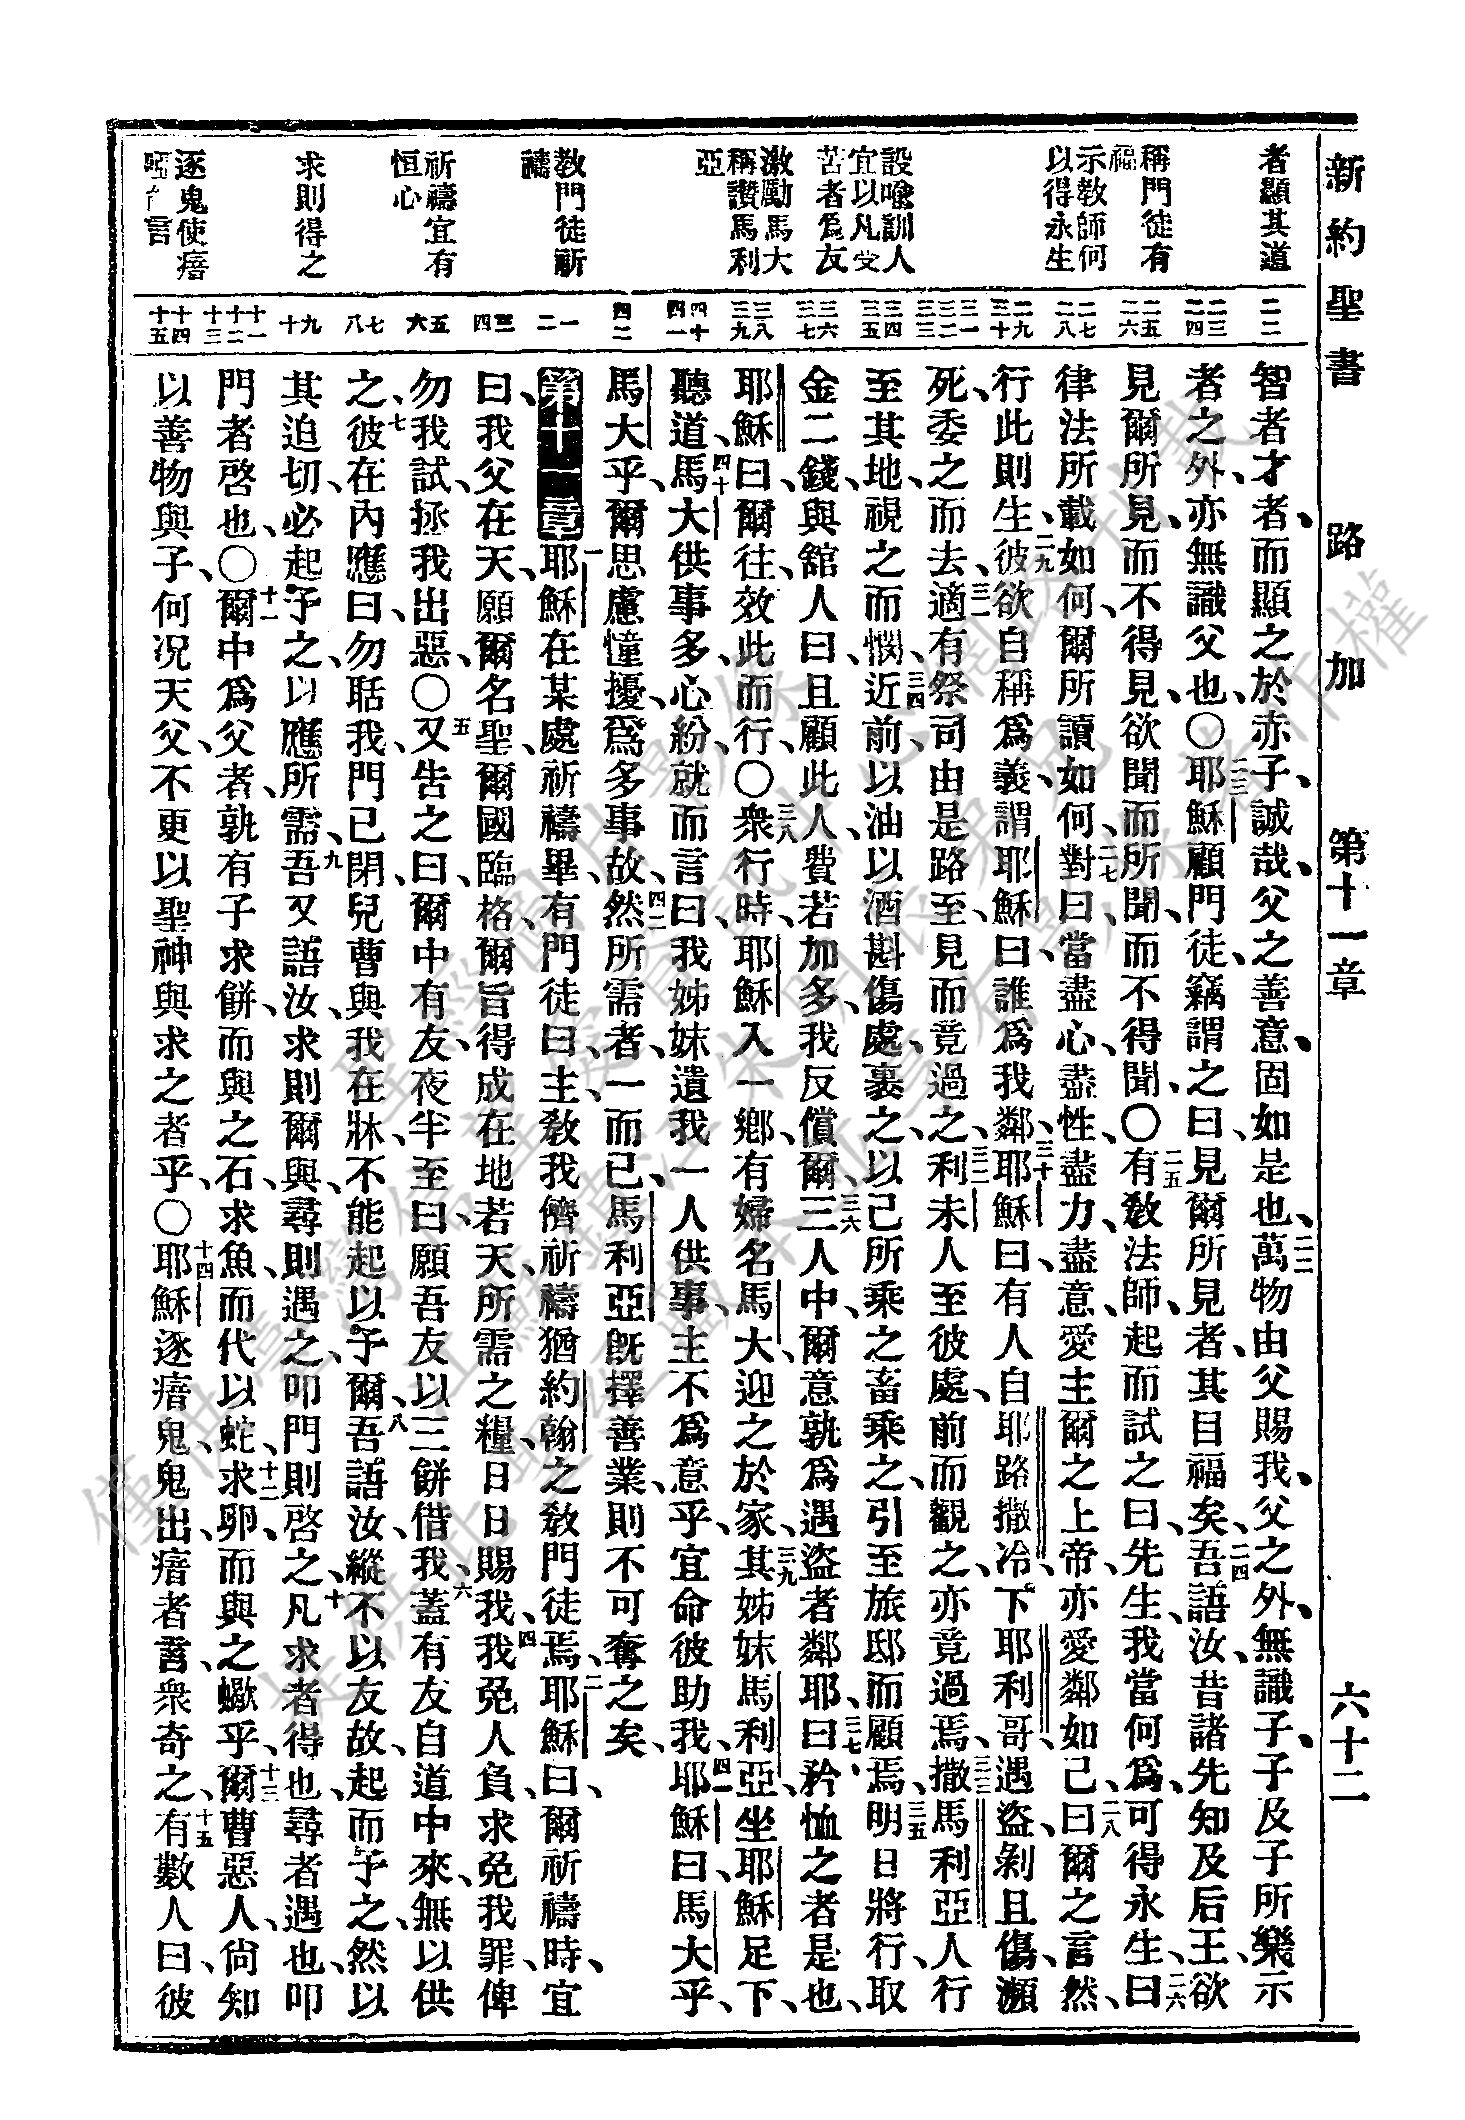 新約聖書 路加 第十一章 六十二
者顯其道
稱門徒有
福
示敎師何
以得永生
設喩訓人
宜以凡受
苦者爲友
激勵馬大
稱讚馬利
亞
敎門徒祈
禱
祈禱宜有
恒心
求則得之
逐鬼使瘖
言
二二
二三
二四
二五
二六
二七
二八
二九
三十
三一
三二
三三
三四
三五
三六
三七
三八
三九
四十
四一
四二
一
二
三
四
五
六
七
八
九
十
十一
十二
十三
十四
十五
智者才者、而顯之於赤子、誠哉、父之善意、固如是也、二二萬物由父賜我、父之外、無識子、子及子所樂示
者之外、亦無識父也、〇二三耶穌顧門徒、竊謂之曰、見爾所見者、其目福矣、二四吾語汝、昔諸先知及后王、欲
見爾所見、而不得見、欲聞而所聞、而不得聞、〇二五有敎法師、起而試之曰、先生、我當何爲、可得永生、二六曰
律法所載如何、爾所讀如何、二七對曰、當盡心、盡性、盡力、盡意、愛主爾之上帝、亦愛鄰如己、二八曰、爾之言然、
行此則生、二九彼欲自稱爲義、謂耶穌曰、誰爲我鄰、三十耶穌曰、有人自耶路撒冷下耶利哥、遇盜、剝且傷、瀕
死、委之而去、三一適有祭司由是路至、見而竟過之、三二利未人至彼處、前而觀之、亦竟過焉、三三撒馬利亞人行
至其地、視之而憫、三四近前、以油以酒斟傷處、裹之、以己所乘之畜乘之、引至旅邸而顧焉、三五明日將行、取
金二錢、與舘人曰、且顧此人、費若加多、我反償爾、三六三人中、爾意孰爲遇盜者鄰耶、三七曰、矜恤之者是也、
耶穌曰、爾往、效此而行、〇三八衆行時、耶穌入一鄉、有婦名馬大、迎之於家、三九其姊妹馬利亞、坐耶穌足下、
聽道、四十馬大供事多、心紛、就而言曰、我姊妹遺我一人供事、主不爲意乎、宜命彼助我、四一耶穌曰、馬大乎、
馬大乎、爾思慮憧擾、爲多事故、四二然所需者、一而已、馬利亞旣擇善業、則不可奪之矣、
第十一章 一耶穌在某處祈禱畢、有門徒曰、主、敎我儕祈禱、猶約翰之敎門徒焉、二耶穌曰、爾祈禱時、宜
曰、我父在天、願爾名聖、爾國臨格、爾旨得成、在地若天、三所需之糧、日日賜我、四我免人負、求免我罪、俾
勿我試、拯我出惡、〇五又告之曰、爾中有友、夜半至、曰、願吾友以三餅借我、六蓋有友自道中來、無以供
之、七彼在內應曰、勿聒我、門已閉、兒曹與我在牀、不能起以予爾、八吾語汝、縱不以友故、起而予之、然以
其迫切、必起予之、以應所需、九吾又語汝、求則爾與、尋則遇之、叩門則啓之、十凡求者得也、尋者遇也、叩
門者啓也、〇十一爾中爲父者、孰有子求餅、而與之石、求魚、而代以蛇、十二求卵、而與之蠍乎、十三爾曹惡人、尙知
以善物與子、何况天父、不更以聖神與求之者乎、〇十四耶穌逐瘖鬼、鬼出、瘖者言、衆奇之、十五有數人曰、彼